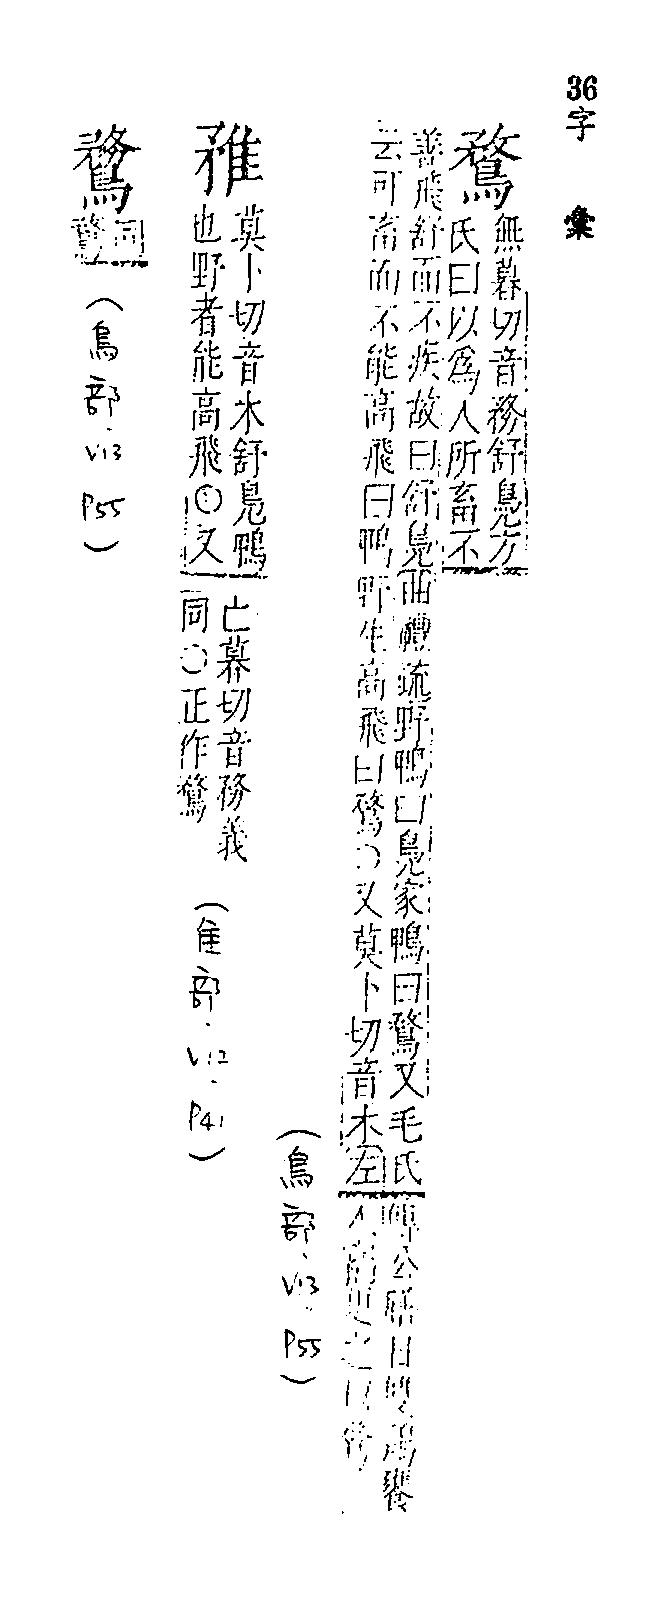 36字彙
鶩
無暮切音務舒鳧方
氏曰以爲人所畜不
善飛舒而不疾故曰舒鳧曲禮疏野鴨曰鳧家鴨曰鶩又毛氏
云可畜而不能高飛曰鴨野生高飛曰鶩○又莫卜切音木左
傳公膳日雙雞饔
人竊更之以鶩
(鳥部.V13.P55)
莫卜切音木舒鳧鴨
也野者能高飛○又
亡暮切音務義
同○正作鶩
(隹部.V12.P41)
同
鶩
(鳥部.V13 P55)